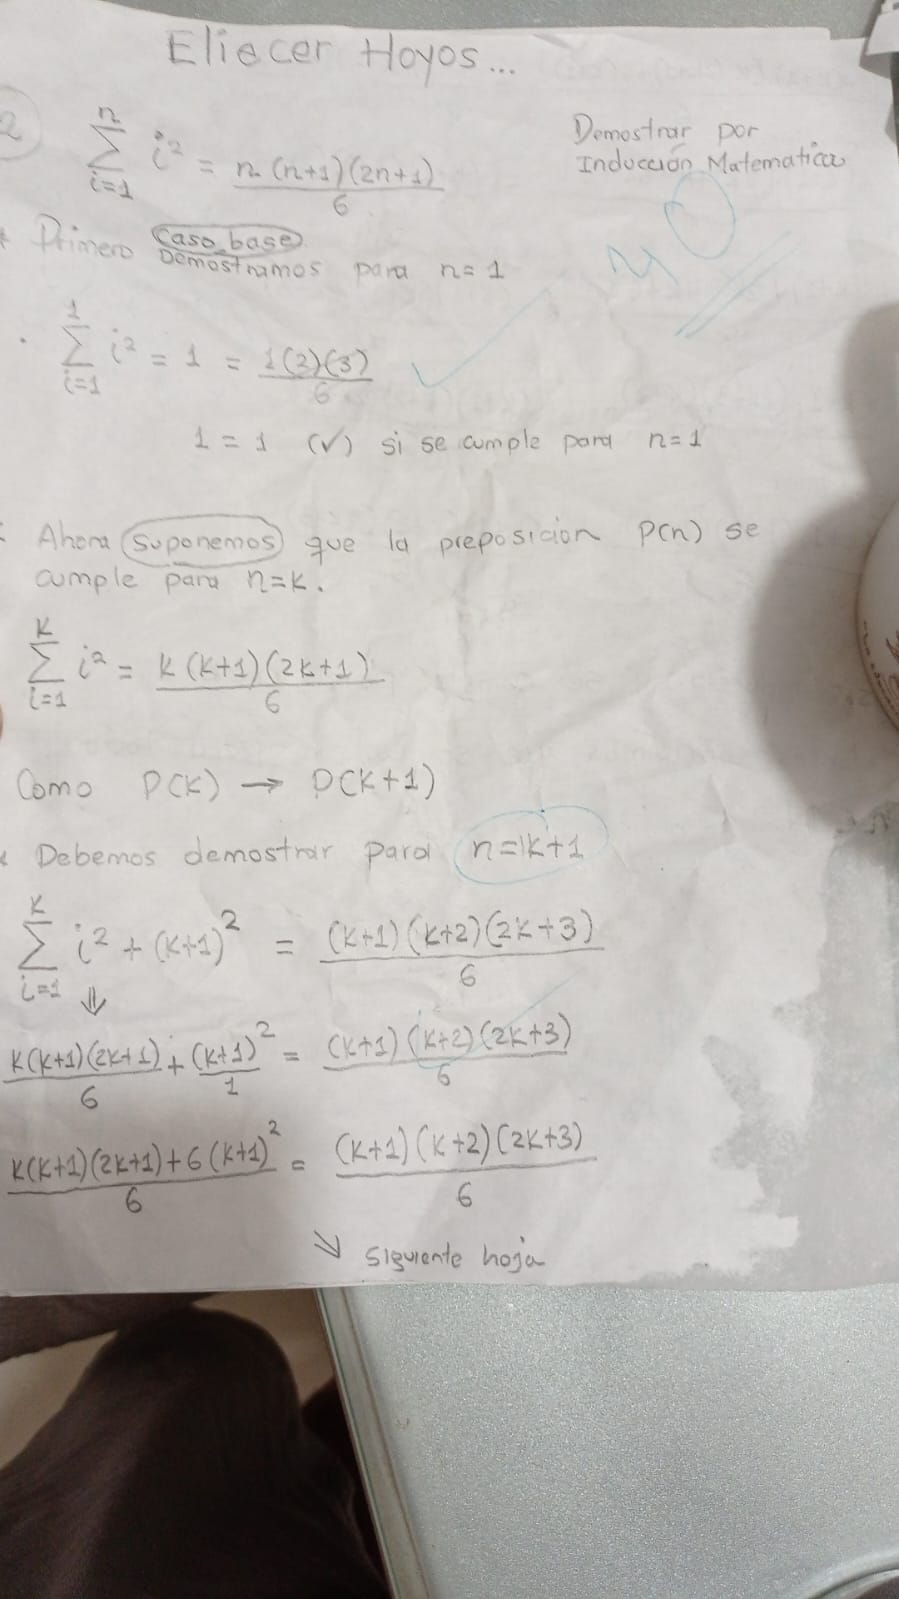 Eliecer Hoyos...
2
n
∑ i² = n (n+1)(2n+1)
i=1 6
Demostrar por
Inducción Matematica
Primero Caso base
Demostramos para n=1
1
∑ i² = 1 = 1(2)(3)
i=1 6
1 = 1 (✓) si se cumple para n=1
Ahora suponemos que la preposición P(n) se
cumple para n=K.
K
∑ i² = K (K+1)(2K+1)
i=1 6
Como P(K) → P(K+1)
Debemos demostrar para n=K+1
K
∑ i² + (K+1)² = (K+1)(K+2)(2K+3)
i=1 6
⇓
K(K+1)(2K+1) + (K+1)² = (K+1)(K+2)(2K+3)
6 1 6
K(K+1)(2K+1)+6(K+1)² = (K+1)(K+2)(2K+3)
6 6
⇘ siguiente hoja